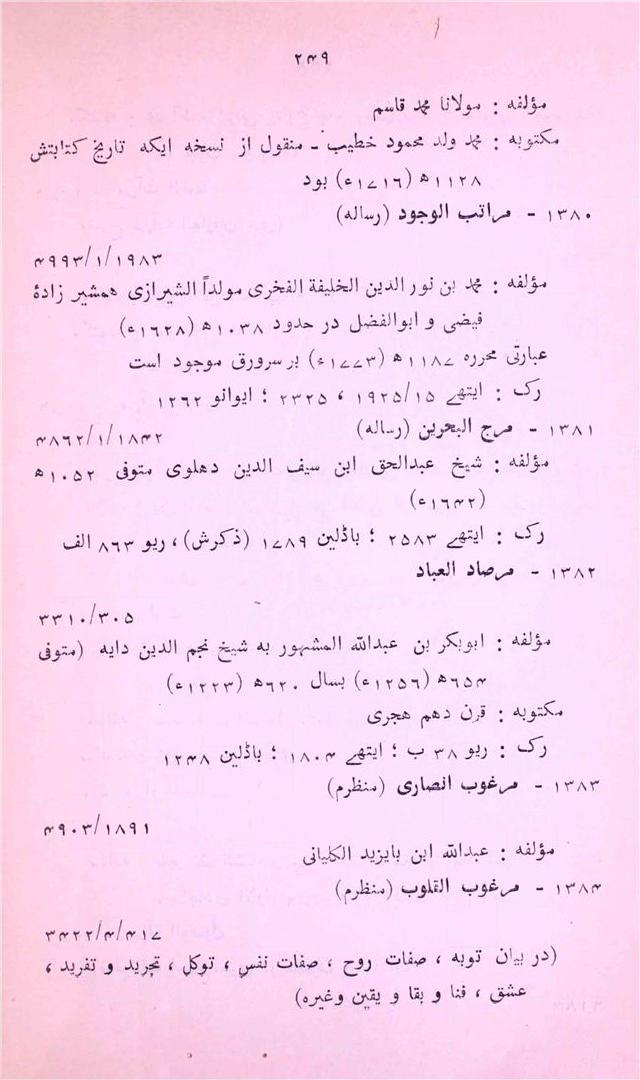 ۲۴۹
مؤلفه : مولانا محمد قاسم
مکتوبه : محمد ولد محمود خطیب ـ منقول از نسخه ایکه تاریخ کتابتش
۱۱۲۸ھ (۱۷۱۶ء) بود
۱۳۸۰ - مراتب الوجود (رساله)
۴۹۹۳/۱/۱۹۸۳
مؤلفه : محمد بن نور الدین الخلیفة الفخری مولداً الشیرازی همشیر زادهٔ
فیضی و ابوالفضل در حدود ۱۰۳۸ھ (۱۶۲۸ء)
عبارتی محرره ۱۱۸۷ھ (۱۷۷۳ء) بر سرورق موجود است
رک : ایتهے ۱۹۲۵/۱۵ ، ۲۳۲۵ ؛ ایوانو ۱۲۶۲
۱۳۸۱ - مرج البحرین (رساله)
۴۸۶۲/۱/۱۸۴۲
مؤلفه : شیخ عبدالحق ابن سیف الدین دهلوی متوفی ۱۰۵۲ھ
(۱۶۴۲ء)
رک : ایتهے ۲۵۸۳ ؛ باڈلین ۱۷۸۹ (ذکرش)، ریو ۸۶۳ الف
۱۳۸۲ - مرصاد العباد
۳۳۱۰/۳۰۵
مؤلفه : ابوبکر بن عبدالله المشهور به شیخ نجم الدین دایه (متوفی
۶۵۴ھ (۱۲۵۶ء) بسال ۶۲۰ھ (۱۲۲۳ء)
مکتوبه : قرن دهم هجری
رک : ریو ۳۸ ب ؛ ایتهے ۱۸۰۴ ؛ باڈلین ۱۲۴۸
۱۳۸۳ - مرغوب انصاری (منظرم)
۴۹۰۳/۱۸۹۱
مؤلفه : عبدالله ابن بایزید الکلیانی
۱۳۸۴ - مرغوب القلوب (منظرم)
۳۴۲۲/۴/۴۱۷
(در بیان توبه ، صفات روح ، صفات نفس ، توکل ، تجرید و تفرید ،
عشق ، فنا و بقا و یقین وغیره)